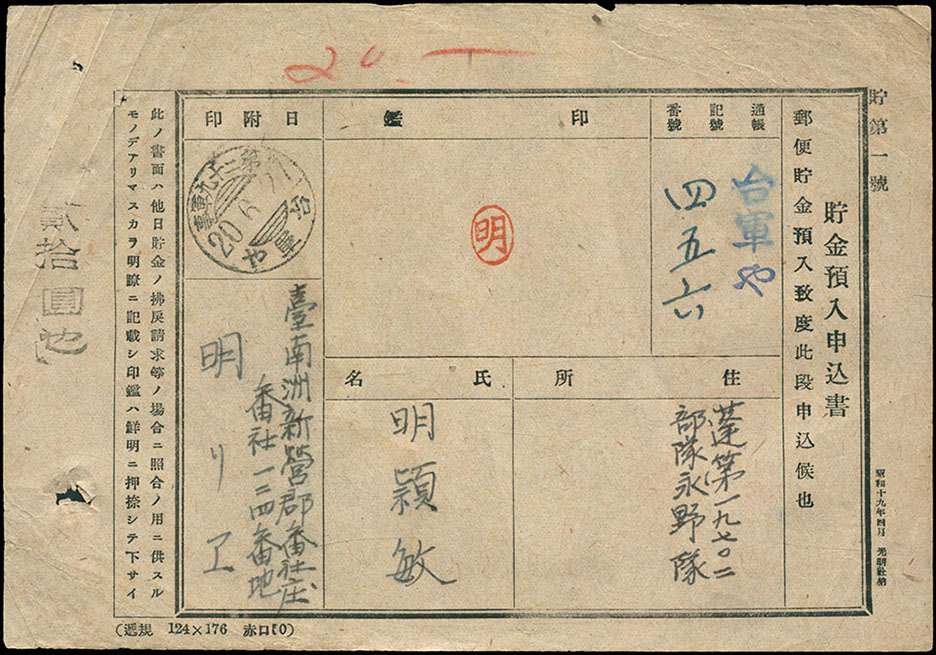 20.—
貯第一號
貯金預入申込書
郵便貯金預入致度此段申込候也
昭和十九年四月 光明社納
通帳
記號
番號
台軍や
四五六
印鑑
明
日附印
台軍や
20.6
住所
蓬第一九七〇二
部隊永野隊
氏名
明潁敏
臺南洲新營郡番社庄
番社一二四番地
明リヱ
此ノ書面ハ他日貯金ノ拂戾請求等ノ場合ニ照合ノ用ニ供スル
モノデアリマスカラ明瞭ニ記載シ印鑑ハ鮮明ニ押捺シテ下サイ
貳拾圓也
(遞規 124×176 赤口【0)